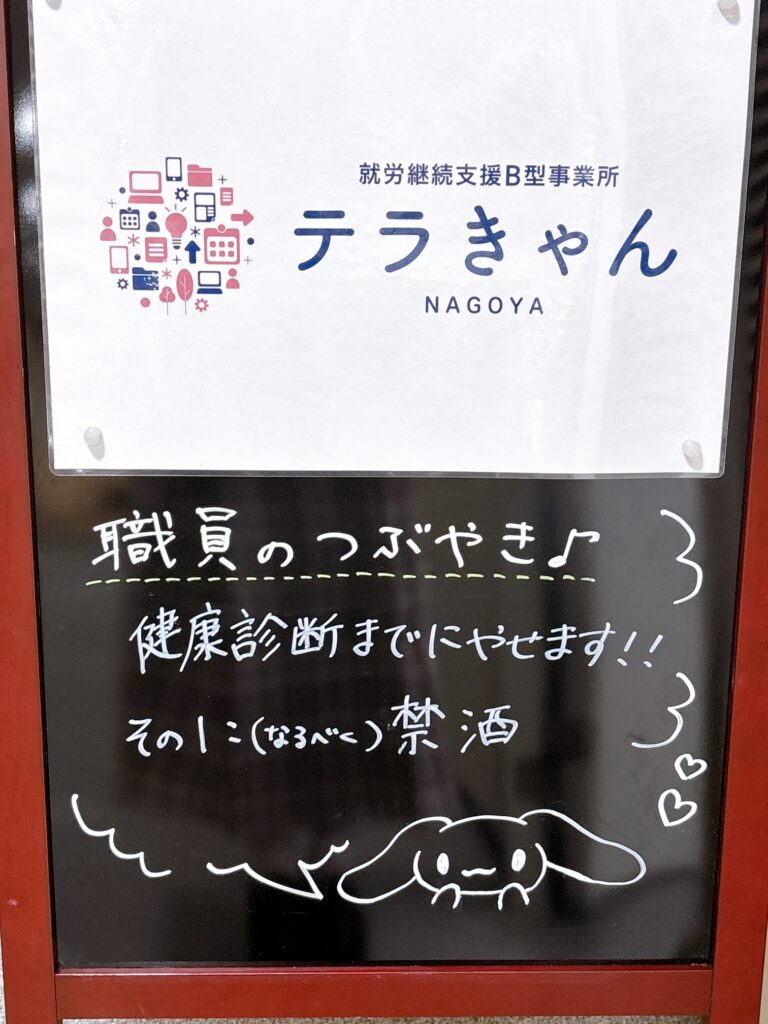 就労継続支援B型事業所
テラきゃん
NAGOYA
職員のつぶやき♪
健康診断までにやせます!!
その1:(なるべく)禁酒